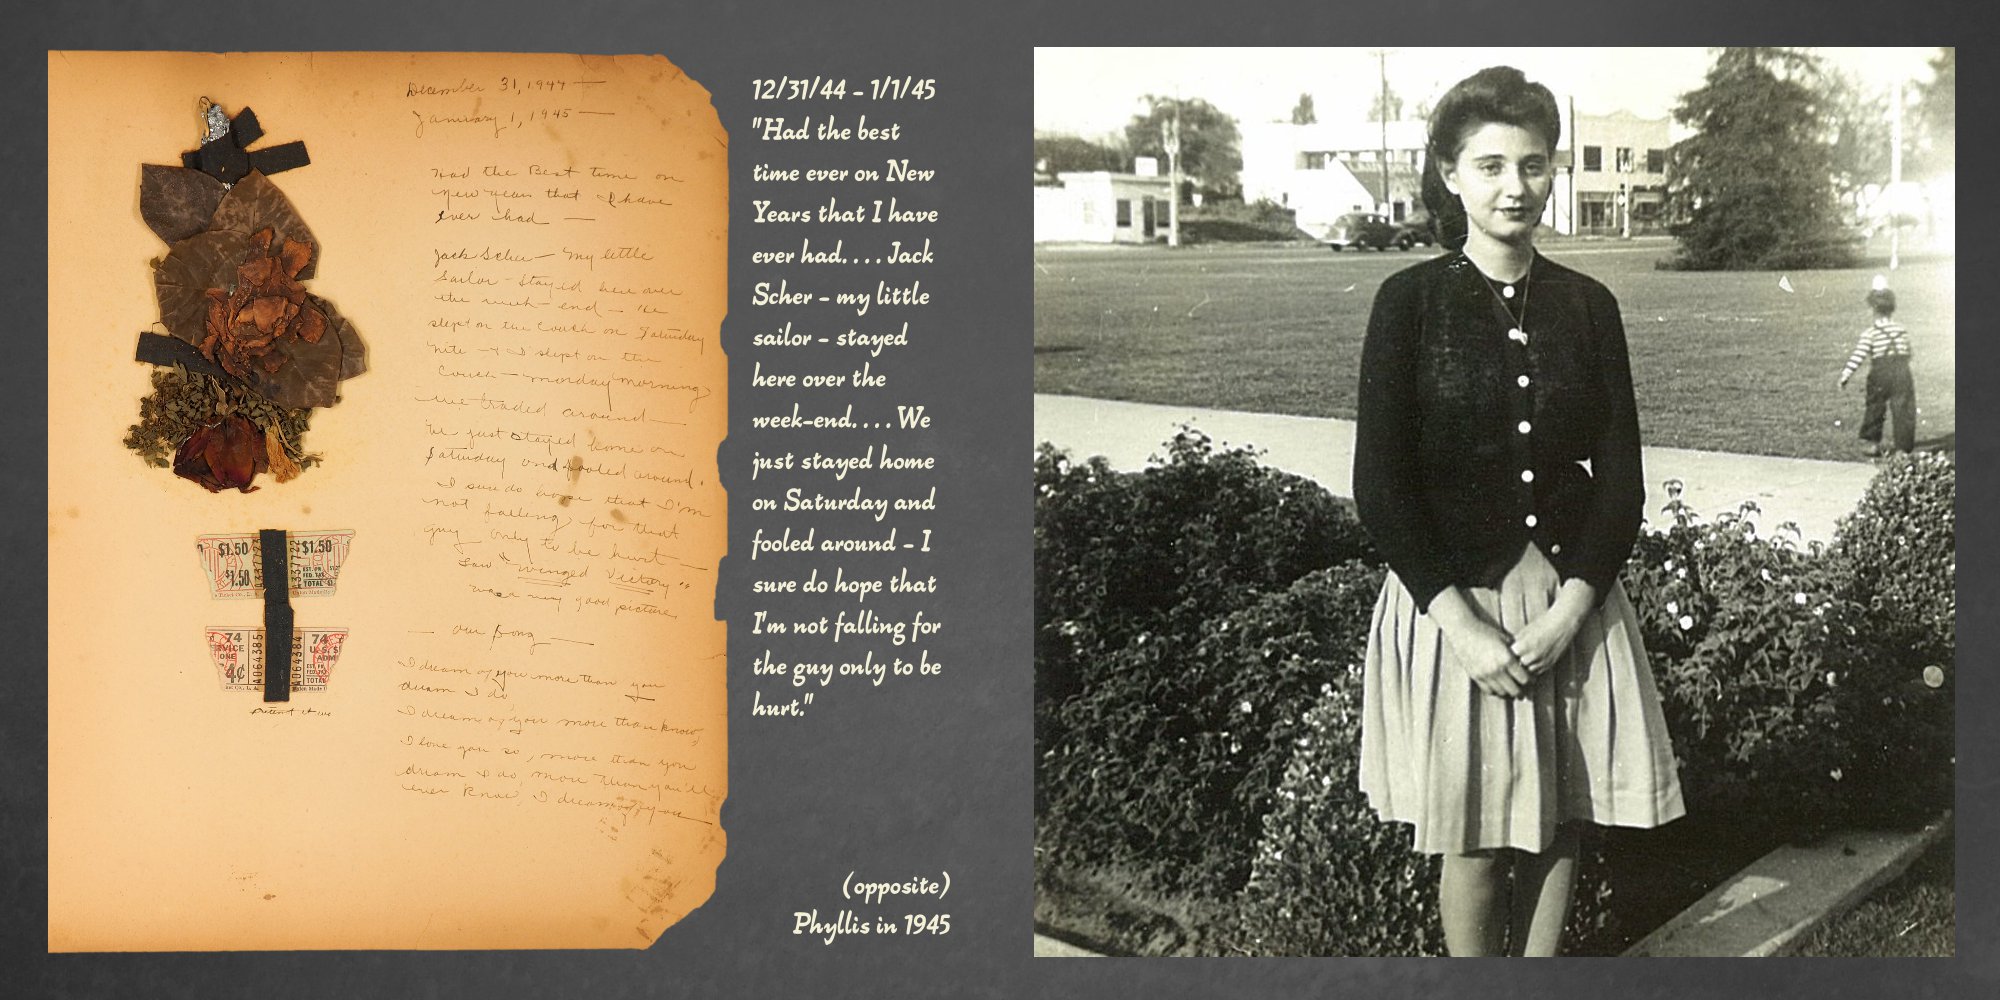 December 31, 1944 —
January 1, 1945 —
Had the Best time on
New Years that I have
ever had —
Jack Scher — my little
Sailor — stayed here over
the week-end — He
slept on the couch on Saturday
nite — & I slept on the
couch — monday morning
we traded around —
We just stayed home on
Saturday and fooled around.
I sure do hope that I'm
not falling for that
guy only to be hurt —
Saw "Winged Victory"
was a very good picture
— Our Song —
I dream of you more than you
dream I do
I dream of you more than know,
I love you so, more than you
dream I do, more than you'll
ever know, I dream of you
$1.50
$1.50
$1.50
TOTAL
74
74
4¢
A064385
A064384
12/31/44 - 1/1/45
"Had the best
time ever on New
Years that I have
ever had. . . . Jack
Scher - my little
sailor - stayed
here over the
week-end. . . . We
just stayed home
on Saturday and
fooled around - I
sure do hope that
I'm not falling for
the guy only to be
hurt."
(opposite)
Phyllis in 1945